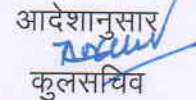 आदेशानुसार
कुलसचिव